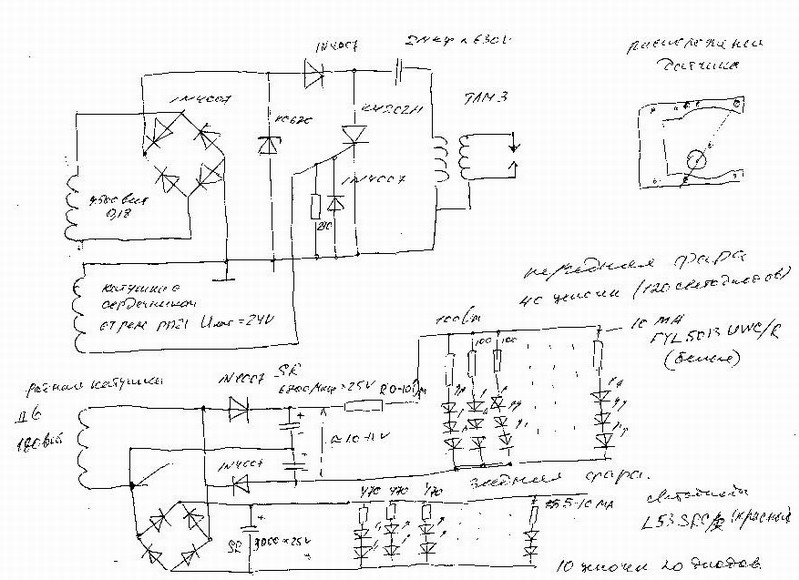 1N4007
2мкф × 630V
расположение
датчика
1N4007
КС620
КУ202Н
ТЛМ3
4500 вит
0,18
1N4007
200
катушка с
сердечником
от реле РП21 Uпит = 24V
передняя фара
40 цепочек (120 светодиодов)
100 Ом
100
100
10 мА
FYL 5013 UWC/R
(белые)
родная катушка
Д6
180 вит
1N4007
6800 мкф × 25V
R 0-10 Ом
≈ 10-11V
1N4007
задняя фара.
светодиоды
L53SRC/E (красный)
470
470
470
5-10 мА
3000 × 25V
10 цепочек 20 диодов